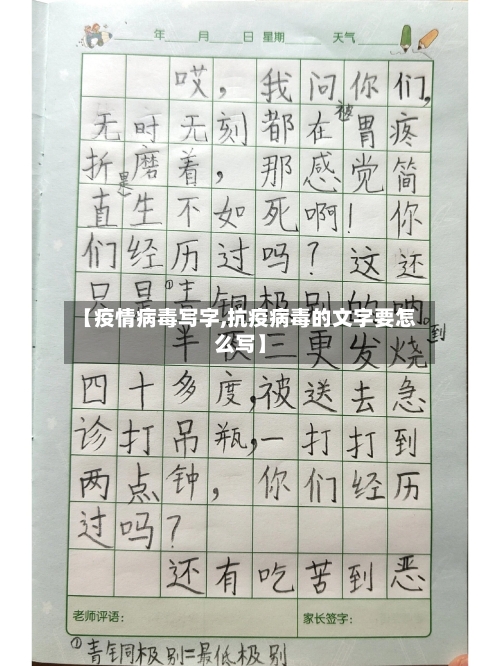 年 月 日 星期 天气
哎，我问你们，
无时无刻都在被胃疼
折磨着，那感觉简
直是生不如死啊！你
们经历过吗？这还
只是①青铜极别的呐。
【疫情病毒写字,抗疫病毒的文字要怎
么写】
半夜三更发烧到
四十多度，被送去急
诊打吊瓶，一打打到
两点钟，你们经历
过吗？
还有吃苦到恶
老师评语：
家长签字：
①青铜极别=最低极别